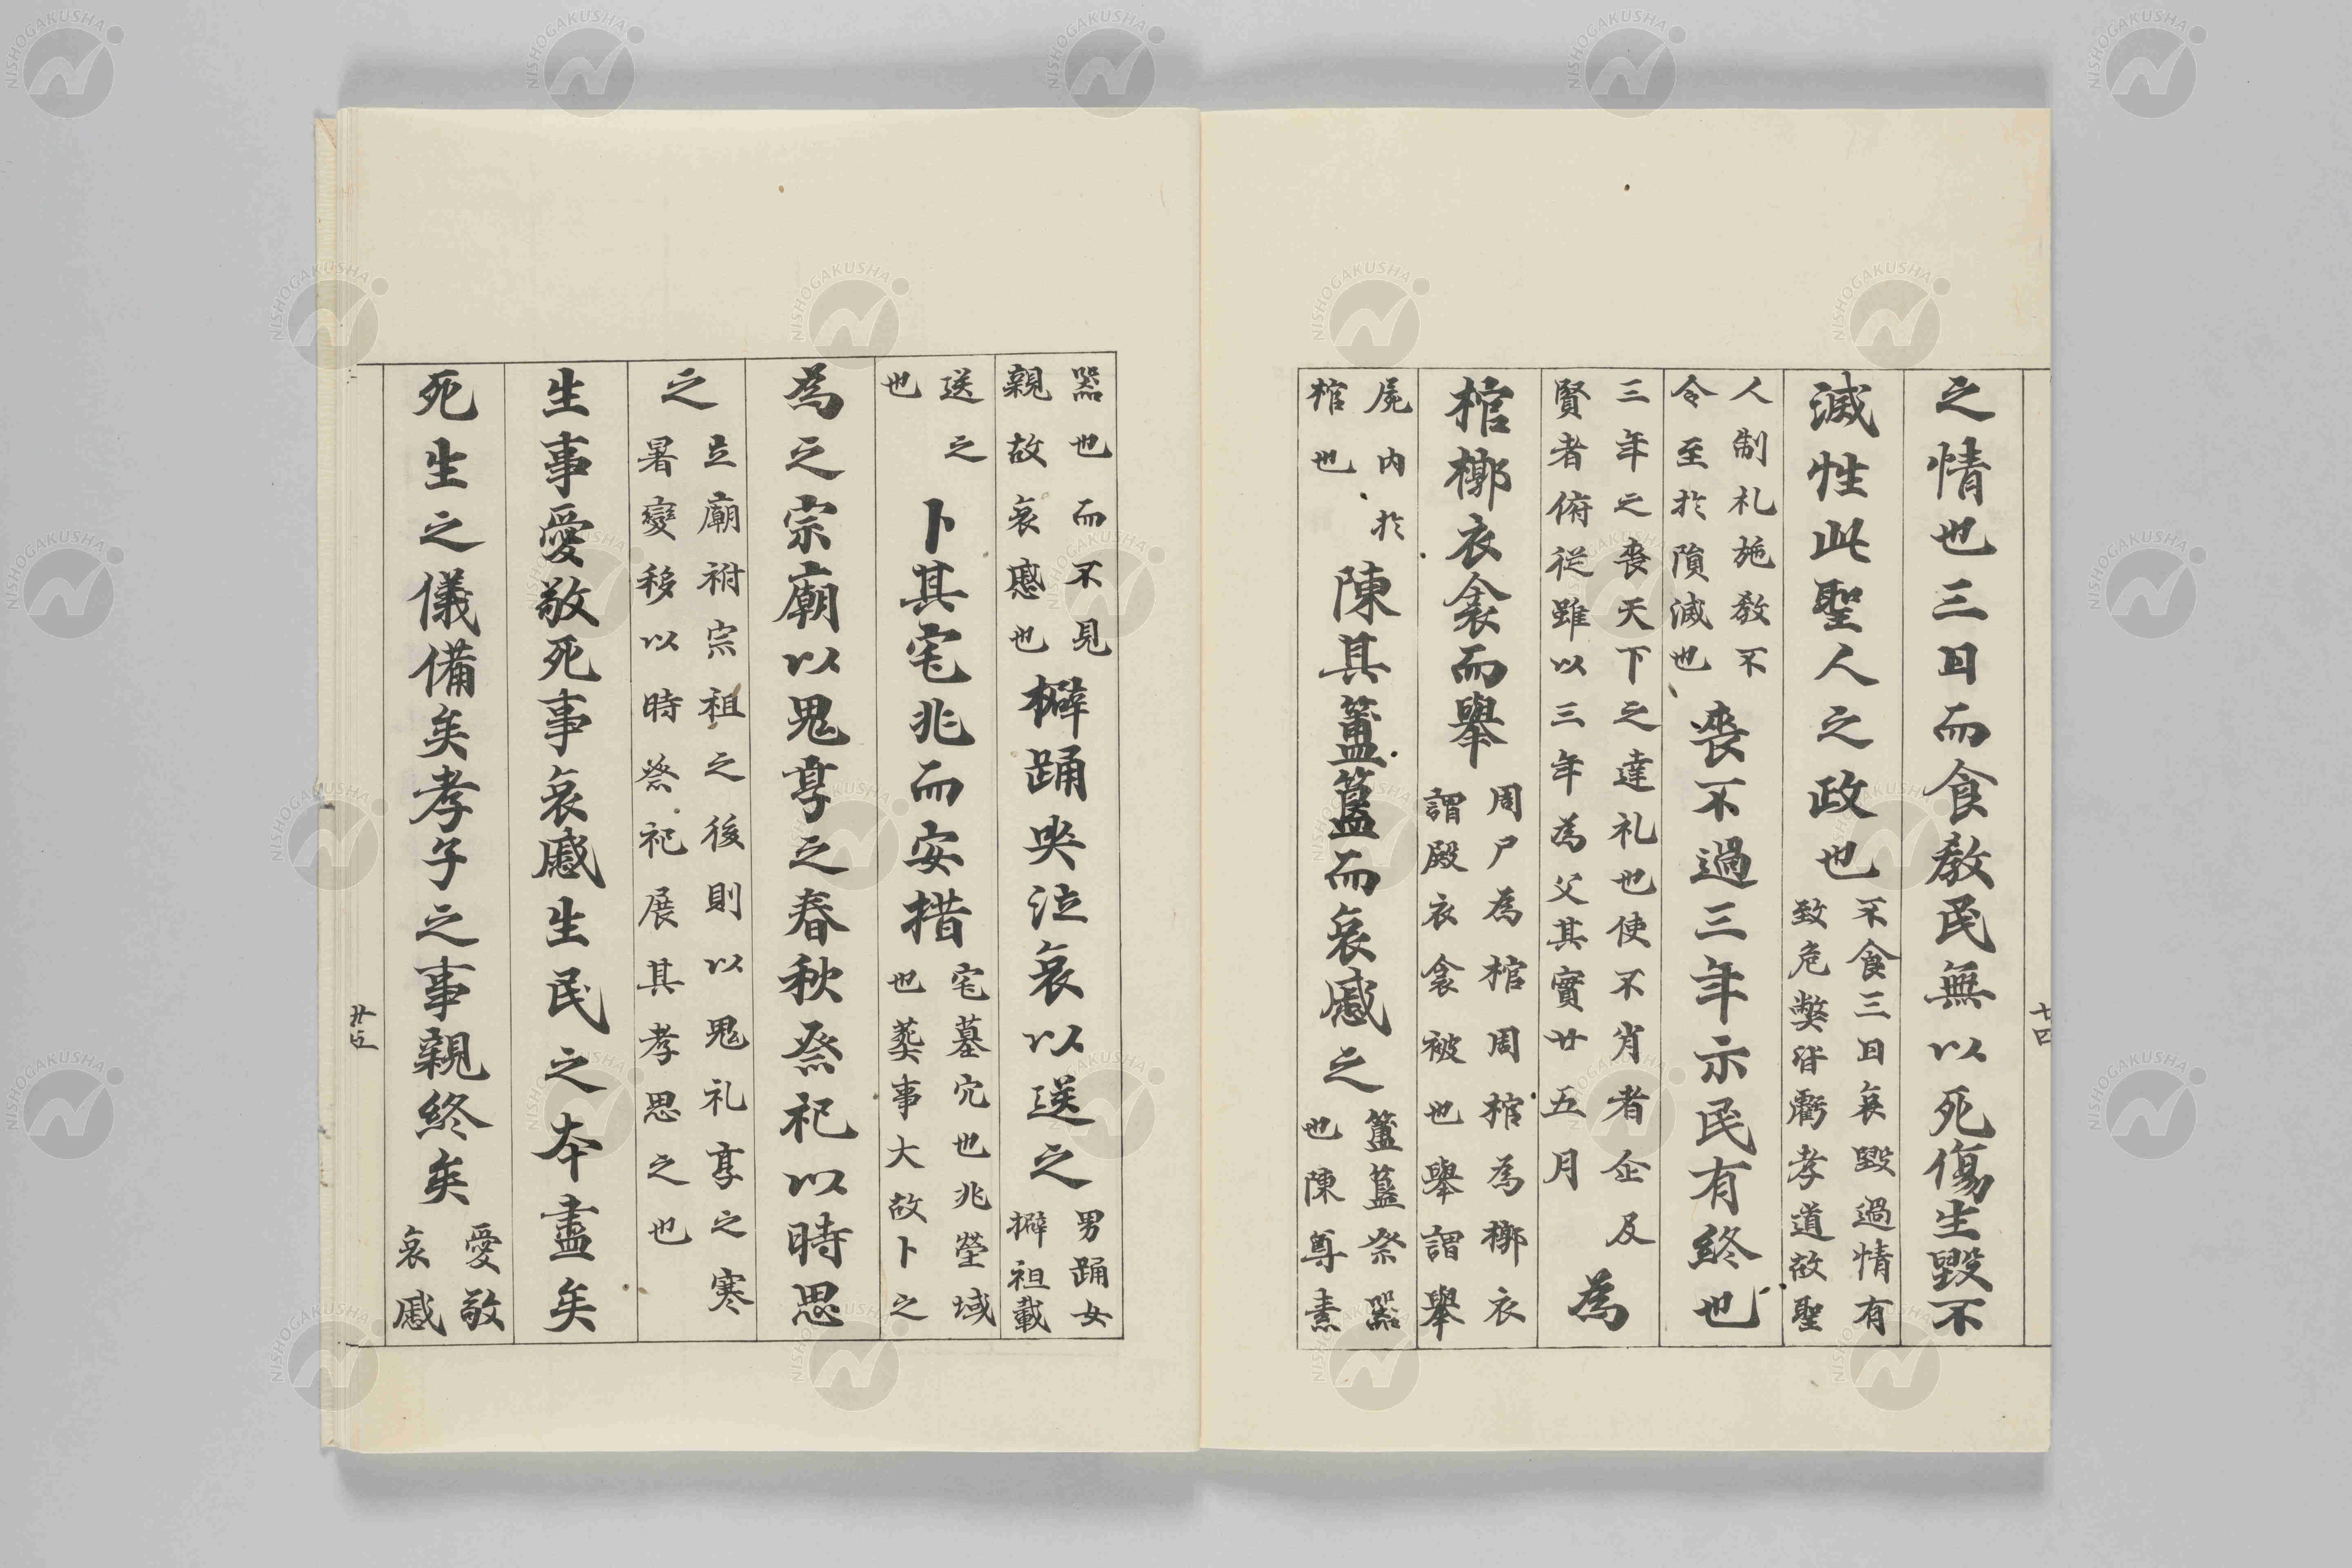 之情也三日而食教民無以死傷生毀不
滅性此聖人之政也
不食三日哀毀過情有
致危弊皆虧孝道故聖
人制礼施教不
令至於隕滅也
喪不過三年示民有終也
三年之喪天下之達礼也使不肖者企及
賢者俯従雖以三年為父其實廿五月
為
棺槨衣衾而舉
周尸為棺周棺為槨衣
謂殿衣衾被也舉謂舉
屍内於
棺也
陳其簠簋而哀慼之
簠簋祭器
也陳尊素
器也而不見
親故哀慼也
擗踊哭泣哀以送之
男踊女
擗祖載
送之
也
卜其宅兆而安措
宅墓穴也兆塋域
也葬事大故卜之
為之宗廟以鬼享之春秋祭祀以時思
之
立廟祔宗祖之後則以鬼礼享之寒
暑變移以時祭祀展其孝思之也
生事愛敬死事哀慼生民之本盡矣
死生之儀備矣孝子之事親終矣
愛敬
哀慼
十四
NISHOGAKUSHA